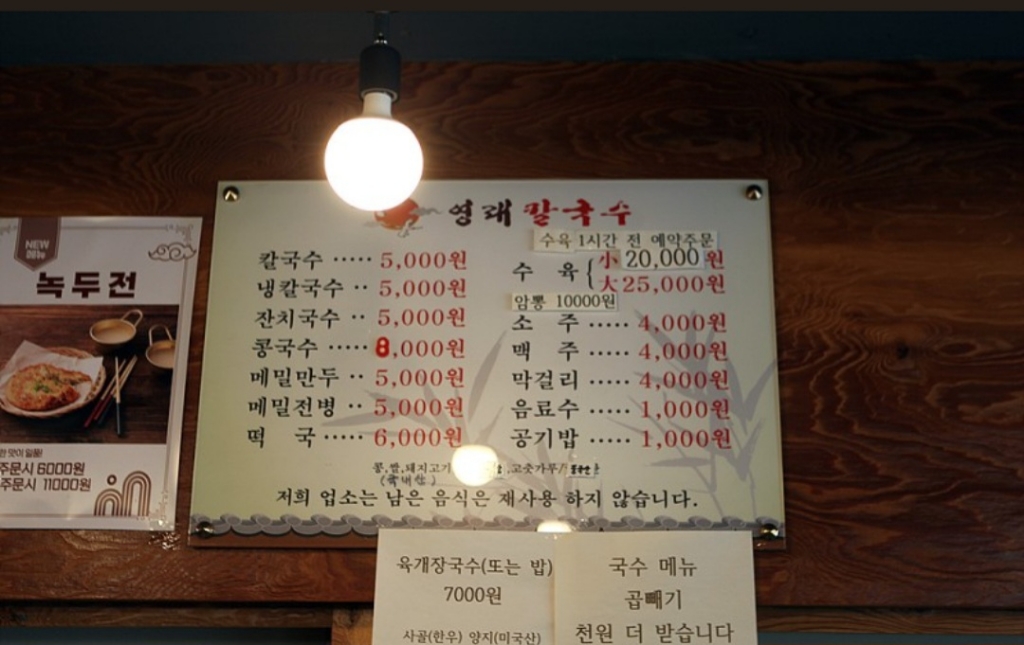 NEW
메뉴
녹두전
한 맛이 일품!
주문시 6000원
주문시 11000원
영래 칼국수
칼국수 ····· 5,000원
냉칼국수 ·· 5,000원
잔치국수 ·· 5,000원
콩국수 ····· 8,000원
메밀만두 ·· 5,000원
메밀전병 ·· 5,000원
떡 국 ····· 6,000원
수육 1시간 전 예약주문
수 육 { 小 20,000원
大 25,000원
암뽕 10000원
소 주 ····· 4,000원
맥 주 ····· 4,000원
막걸리 ····· 4,000원
음료수 ····· 1,000원
공기밥 ····· 1,000원
콩,쌀,돼지고기 ,고춧가루
저희 업소는 남은 음식은 재사용 하지 않습니다.
육개장국수(또는 밥)
7000원
사골(한우) 양지(미국산)
국수 메뉴
곱빼기
천원 더 받습니다